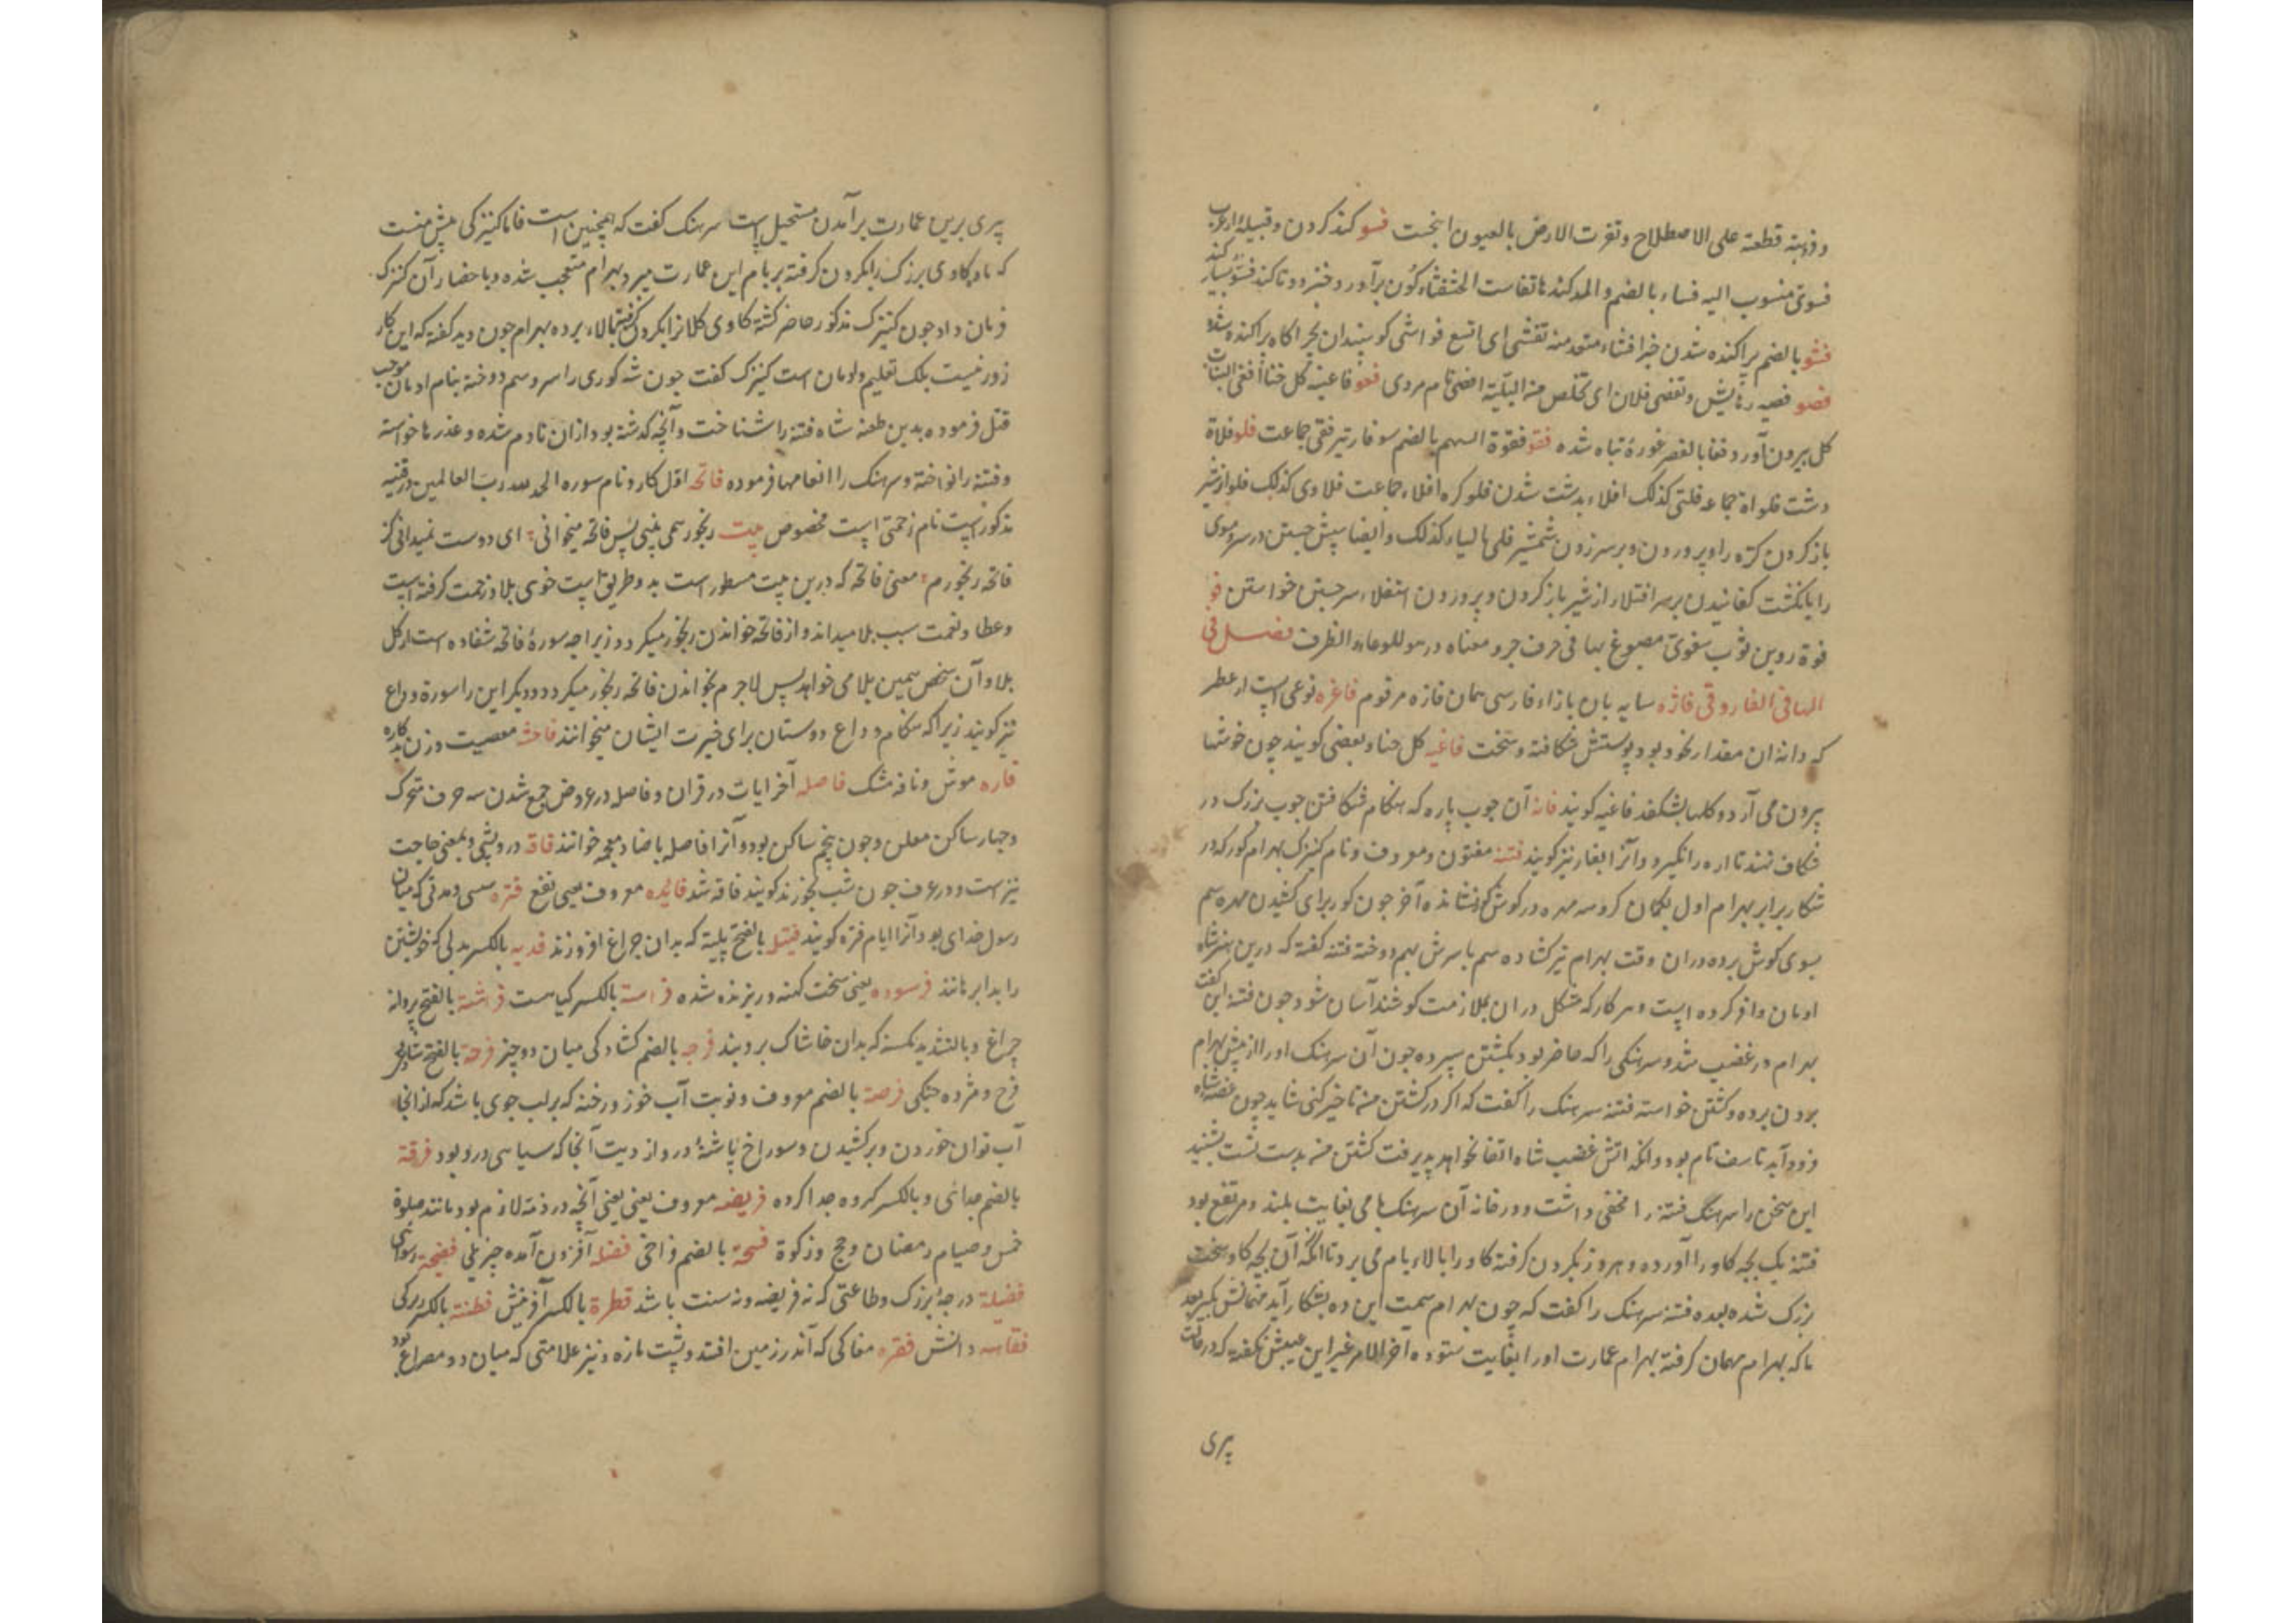 و ذهبته قطعته علی الاصطلاح و تفرت الارض بالعیون انبجست فسو کند کردن و قبیله از عرب
فسوی منسوب الیه فساء بالضم و المد کند تفاست الخنفساء کون برآورد و خنزو و تا کند فسو بسیار کند
فشو بالضم پراکنده شدن خبر افشاء متعد منه تفشی ای اتسع فواشی کوسپندان بچراکاه پراکنده شده
فصو فصیه رهایش و تفصی فلان ای تخلص من البلیة افصی نام مردی فغو فاغیه کل حنا افغی النبات
کل بیرون آورد فغا بالقصر غوره تباه شده فقو فقوة السهم بالضم سوفار تیر فقی جماعت فلو فلاة
دشت فلواة جماعه فلتی کذلک افلاء بدشت شدن فلو کره افلاء جماعت فلاوی کذلک فلو از شیر
باز کردن کره را و پروردن و بر سر زدن شمشیر فلی بالیاء کذلک و ایضا سپش جستن در سر و موی
را بانکشت کفانیدن بر سر افتلاء از شیر باز کردن و پروردن استفلاء سر جستن خواستن فو
فوة روین ثوب مفوی مصبوغ بها فی حرف جر و معناه در هو للوعاء و الظرف فصل فی
الهاء فی الفاروقی فاژه سایه بان بازاء فارسی همان فازه مرقوم فاغره نوعی است از عطر
که دانه ان مقدار نخود بود و پوستش شکافته و سخت فاغیه کل حنا و بعضی کویند چون خوشها
بیرون می آرد و کلها بشکفد فاغیه کویند فانه آن چوب پاره که هنکام شکافتن چوب بزرک در
شکاف نهند تا اره را نکیرد و آنرا بغاز نیز کویند فتنه مفتون و معروف و نام کنیزک بهرام کور که در
شکار برابر بهرام اول بکمان کروسه مهره در کوش کور نشانده آخر چون کور برای کشیدن مهره سم
بسوی کوش برده دران وقت بهرام تیر کشاده سم با سرش بهم دوخته فتنه کفته که درین هنر شاه
اومان وافر کرده است و هر کار که مشکل دران بملازمت کوشند آسان شود چون فتنه این کفت
بهرام در غضب شد و سرهنکی را که حاضر بود بکشتن سپرده چون آن سرهنک او را از پیش بهرام
بردن برده و کشتن خواسته فتنه سرهنک را کفت که اکر در کشتن من تاخیر کنی شاید چون غصه شاه
فرود آید تاسف تام بود و انکه اتش غضب شاه اتفا نخواهد پذیرفت کشتن من بدست تست بشنید
این سخن را سرهنک فتنه را مخفی داشت و در خانه آن سرهنک بامی بغایت بلند و مرتفع بود
فتنه یک بچه کاو را آورده و هر روز بکردن کرفته کاو را بالاء بام می برد تا انکه آن بچه کاو سخت
بزرک شده بعده فتنه سرهنک را کفت که چون بهرام سمت این ده بشکار آید مهمانش بکیر بعد
ما که بهرام مهمان کرفته بهرام عمارت او را بغایت ستوده اخر الامر غیر این عیبش نکفته که در وقت
پری
پری برین عمارت برآمدن مستحیل است سرهنک کفت که همچنین است فاما کنیزکی پیش منست
که ماده کاوی بزرک را بکردن کرفته بر بام این عمارت میرد بهرام متعجب شده و باحضار آن کنیزک
فرمان داد چون کنیزک مذکور حاضر کشته کاوی کلانرا بکردن کرفته ببالاء برده بهرام چون دید کفته که این کار
زور نیست بلک تعلیم و اومان است کنیزک کفت چون شه کوری را سر و سم دوخته بنام اومان موجب
قتل فرموده بدین طعنه شاه فتنه را شناخت و آنچه کذشته بود ازان نادم شده و عذرها خواسته
و فتنه را نواخته و سرهنک را انعامها فرموده فاتحه اوّل کار و نام سوره الحمد لله رب العالمین در قنیه
مذکور است نام زحمتی است مخصوص بیت رنجورمی بینی پس فاتحه میخوانی ای دوست نمیدانی کز
فاتحه رنجورم معنی فاتحه که درین بیت مسطور است بدو طریق است خوی بلا و زحمت کرفته است
و عطا و نعمت سبب بلا میداند و از فاتحه خواندن رنجور میکردد زیراچه سورهٔ فاتحه شفا ده است از کل
بلا و آن شخص همین بلا می خواهد پس لاجرم بخواندن فاتحه رنجور میکردد و دیکر این را سورة وداع
نیز کویند زیرا که هنکام وداع دوستان برای خیرت ایشان میخوانند فاحشه معصیت و زن بدکاره
فاره موش و نافه مشک فاصله آخر ایات در قران و فاصله در عروض جمع شدن سه حرف متحرک
و چهار ساکن معلن و چون پنجم ساکن بود و آنرا فاضله باضاد معجمه خوانند فاقه درویشی و بمعنی حاجت
نیز است و در عرف چون شب نخورند کویند فاقه شد فایده معروف یعنی نفع فتره سستی و مدتی که میان
رسول خدای بود و آنرا ایام فتره کویند فتیله بالفتح پلیته که بدان چراغ افروزند فدیه بالکسر بدلی که خویشتن
را بدابرهانند فرسوده یعنی سخت کهنه و ریزنده شده فراسة بالکسر کیاست فراشة بالفتح پروانه
چراغ و بالتشدید نکسنه که بدان خاشاک بروبند فرجه بالضم کشادکی میان دو چیز فرحة بالفتح شادی
فرح و مژده جنکی فرصة بالضم معروف و نوبت آب خور و رخنه که بر لب جوی باشد که ازانجا
آب توان خوردن و برکشیدن و سوراخ پاشنهٔ در و از دیت آنجا که سیاهی درو بود فرقة
بالضم جدائی و بالکسر کروه جدا کرده فریضه معروف یعنی یعنی آنچه در ذمه لازم بود مانند صلوة
خمس و صیام رمضان و حج و زکوة فسحة بالضم فراخی فضله آفزون آمده چیزیی فضیحة رسوائی
فضیلة درجهٔ بزرک و طاعتی که نه فریضه و نه سنت باشد فطرة بالکسر آفرینش فطنة بالکسر زیرکی
فقاهه دانش فقره مغاکی که آندر زمین افتد و پشت مازه و نیز علامتی که میان دو مصراع بود